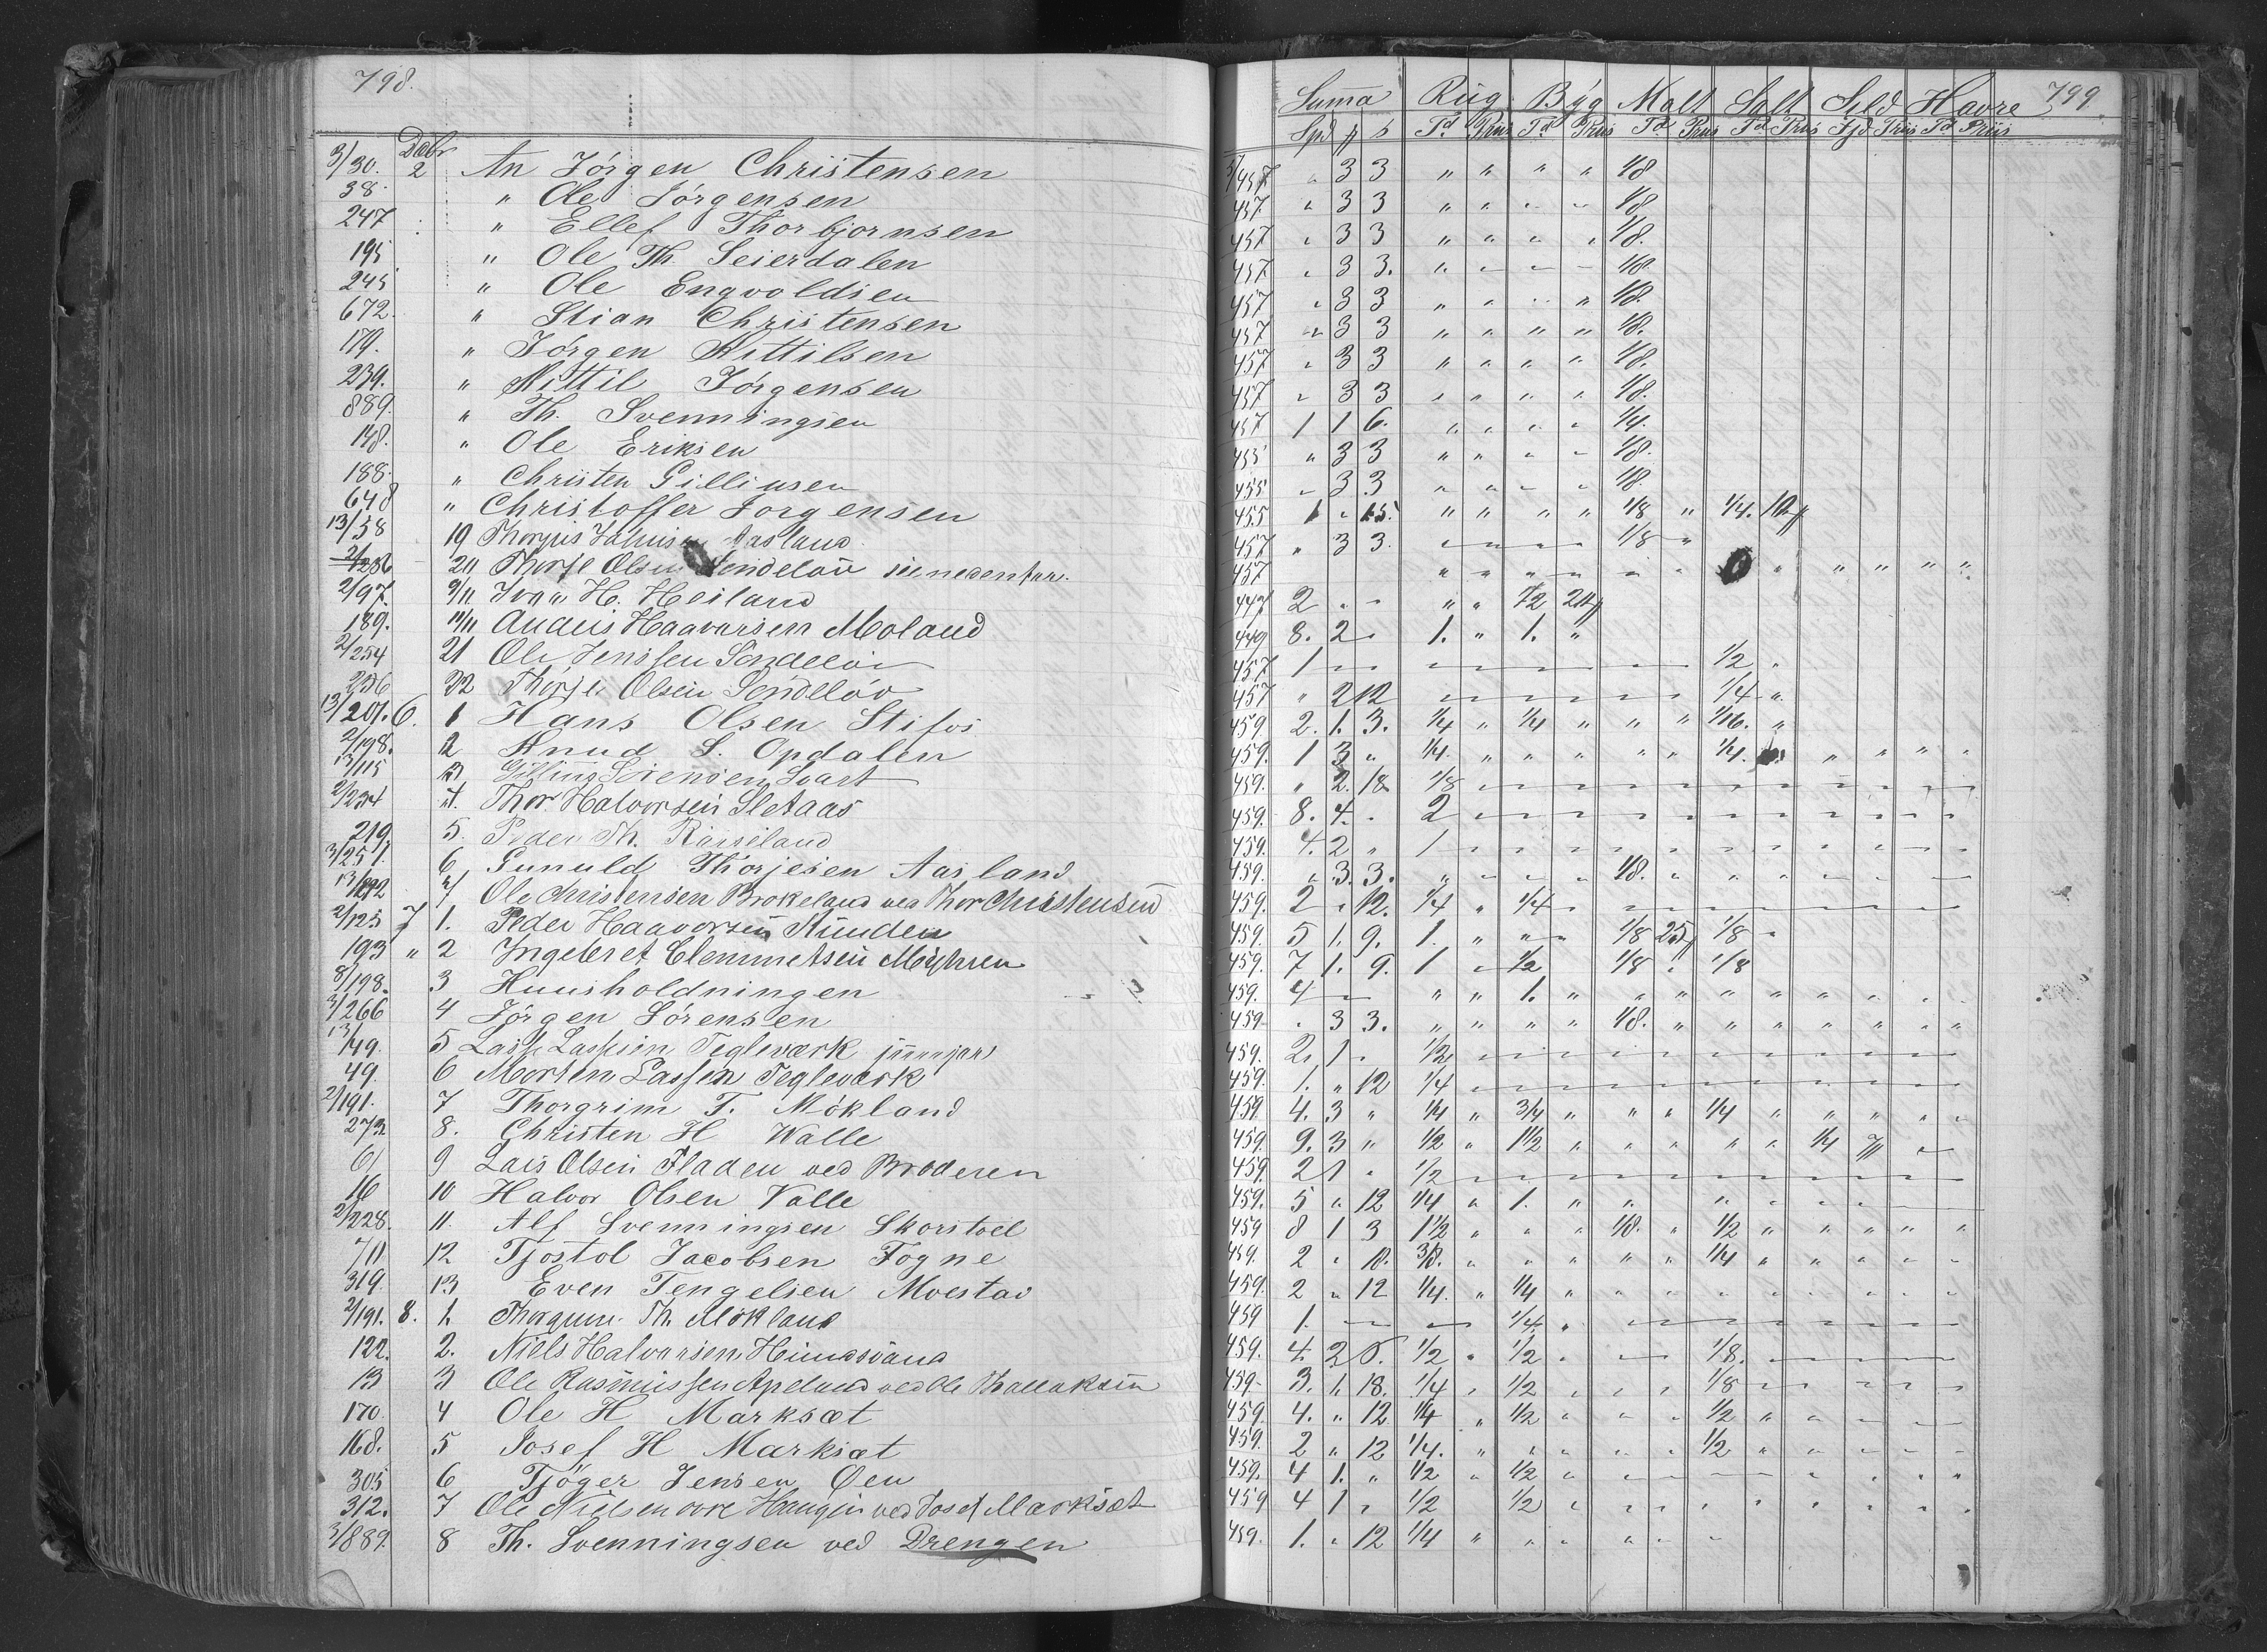 798.
Decbr
3/30. 2 An Jørgen Christensen
38. " Ole Jørgensen
247 " Ellef Thorbjørnsen
195 " Ole Th. Seierdalen
245 " Ole Engvoldsen
672. " Stian Christensen
179. " Jørgen Kittilsen
239. " Kittil Jørgensen
889. " Th. Svenningsen
148. " Ole Eriksen
188. " Christen Gilliusen
648 " Christoffer Jørgensen
13/58 19 Aasland
20 Olsen Søndeløv
2/97. 9/11 H. Heiland
189. Haavorsen Moland
2/254 21 Ole Jenssen Søndeløv
256 22 Olsen Søndeløv
13/201. 6. 1 Hans Olsen Stifos
2/198. 2 Knud S. Opdalen
13/115 3 Sørensen Svart
2/234 4. Thor Halvorsen Sletaas
219. 5. Peder Th.
3/251. 6 Gunuld Thorjesen Aasland
7 Ole Christensen Brokeland ved Thor Christensen
2/125 7 1. Peder Haavorsen
193 " 2 Ingebret Clemmetsen Myhren
8/198. 3 Huusholdningen
3/266 4 Jørgen Sørensen
13/149. 5 Teglværk
49. 6 Morten Lassen Teglværk
2/191. 7 Thorgrim T. Møkland
273 8. Christen H Walle
61 9 Lars Olsen Fladen ved Broderen
16 10 Halvor Olsen Valle
2/228. 11. Alf Svenningsen Skorstoel
70 12 Tjøstol Jacobsen Fogne
319. 13 Even Tengelsen Moestad
2/191. 8. 1. Th. Møkland
122. 2. Niels Halvorsen
13 3 Ole Rasmussen Apeland ved Ole
170. 4 Ole H Marksæt
168. 5 Josef H Marksæt
305 6 Tjøger Jensen Øen
312. 7 Ole Nielsen ved Josef Marksæt
3/889. 8 Th. Svenningsen ved Drengen
799.
Suma Rug Byg Malt Salt Sild Havre
Spd Td Priis Td Priis Td Priis Td Priis Fjd Priis Td Priis
3/457 " 3 3 " " " " 1/8
457 " 3 3 " " " " 1/8
457 " 3 3 " " " " 1/8.
457 " 3 3. " " " " 1/8
457 " 3 3 " " " " 1/8.
457 " 3 3 " " " " 1/8.
457 " 3 3 " " " " 1/8.
457 " 3 3 " " " " 1/8.
457 1 1 6. " " " " 1/4.
455 " 3 3 " " " " 1/8.
455 " 3 3 " " " " 1/8.
455 1 " 15. " " " " 1/8 " 1/4.
457 " 3 3. " " " " 1/8 "
457 " " " " " " " " " " "
447 2 " " " " 1/2
449 8. 2 " 1. " 1. "
457 1 " " " " " " " " 1/2 "
457 " 2 12 " " " " " " 1/4 "
459. 2. 1. 3. 1/4 " 1/4 " " " 1/16. "
459. 1 3 " 1/4. " " " " " 1/4. " " " "
459. " 2. 18 1/8 " " " " " " " " " " "
459. 8. 4. " 2 " " " " " " " " " " "
459. 4. 2 " 1 " " " " " " " " " " "
459. " 3. 3. " " " " 1/8. " " " " " " "
459. 2 " 12. 1/4 " 1/4 " " " " " " " " "
459. 5 1. 9. 1. " " " 1/8 1/8 "
459. 7 1. 9. 1 " 1/2 1/8 " 1/8
459. 4 " " " " 1. " " " " " " " " "
459 " 3 3. " " " " 1/8. " " " " " " "
459. 2. 1 " 1/2 " " " " " " " " " " "
459. 1. " 12 1/4 " " " " " " " " " " "
459. 4. 3 " 1/4 " 3/4 " " " 1/4 " " " " "
459. 9. 3 " 1/2 " 1 1/2 " " " " " 1/4
459 2 1 " 1/2 " " " " " " " " " " "
459. 5 " 12 1/4 " 1. " " " " " " "
459 8 1 3 1 1/2 " " " 1/8. " 1/2 " " " " "
459. 2 " 18. 3/8. " " " " " 1/4 " " " " "
459. 2 " 12 1/4. " 1/4 " " " " " " " " "
459 1. " " " " 1/4. " " " " " " " " "
459. 4. 2 6. 1/2 " 1/2 " " " 1/8. " " " " "
459 3. 1. 18. 1/4 " 1/2 " " " 1/8 " " " " "
459. 4. " 12 1/4 " 1/2 " " " 1/2 " " " " "
459. 2 " 12 1/4. " " " " " 1/2 " " " " "
459. 4 1. " 1/2 " 1/2 " " " " " " " " "
459 4 1 " 1/2 1/2 " " " " " " " " "
459. 1. " 12 1/4 " " " " " "